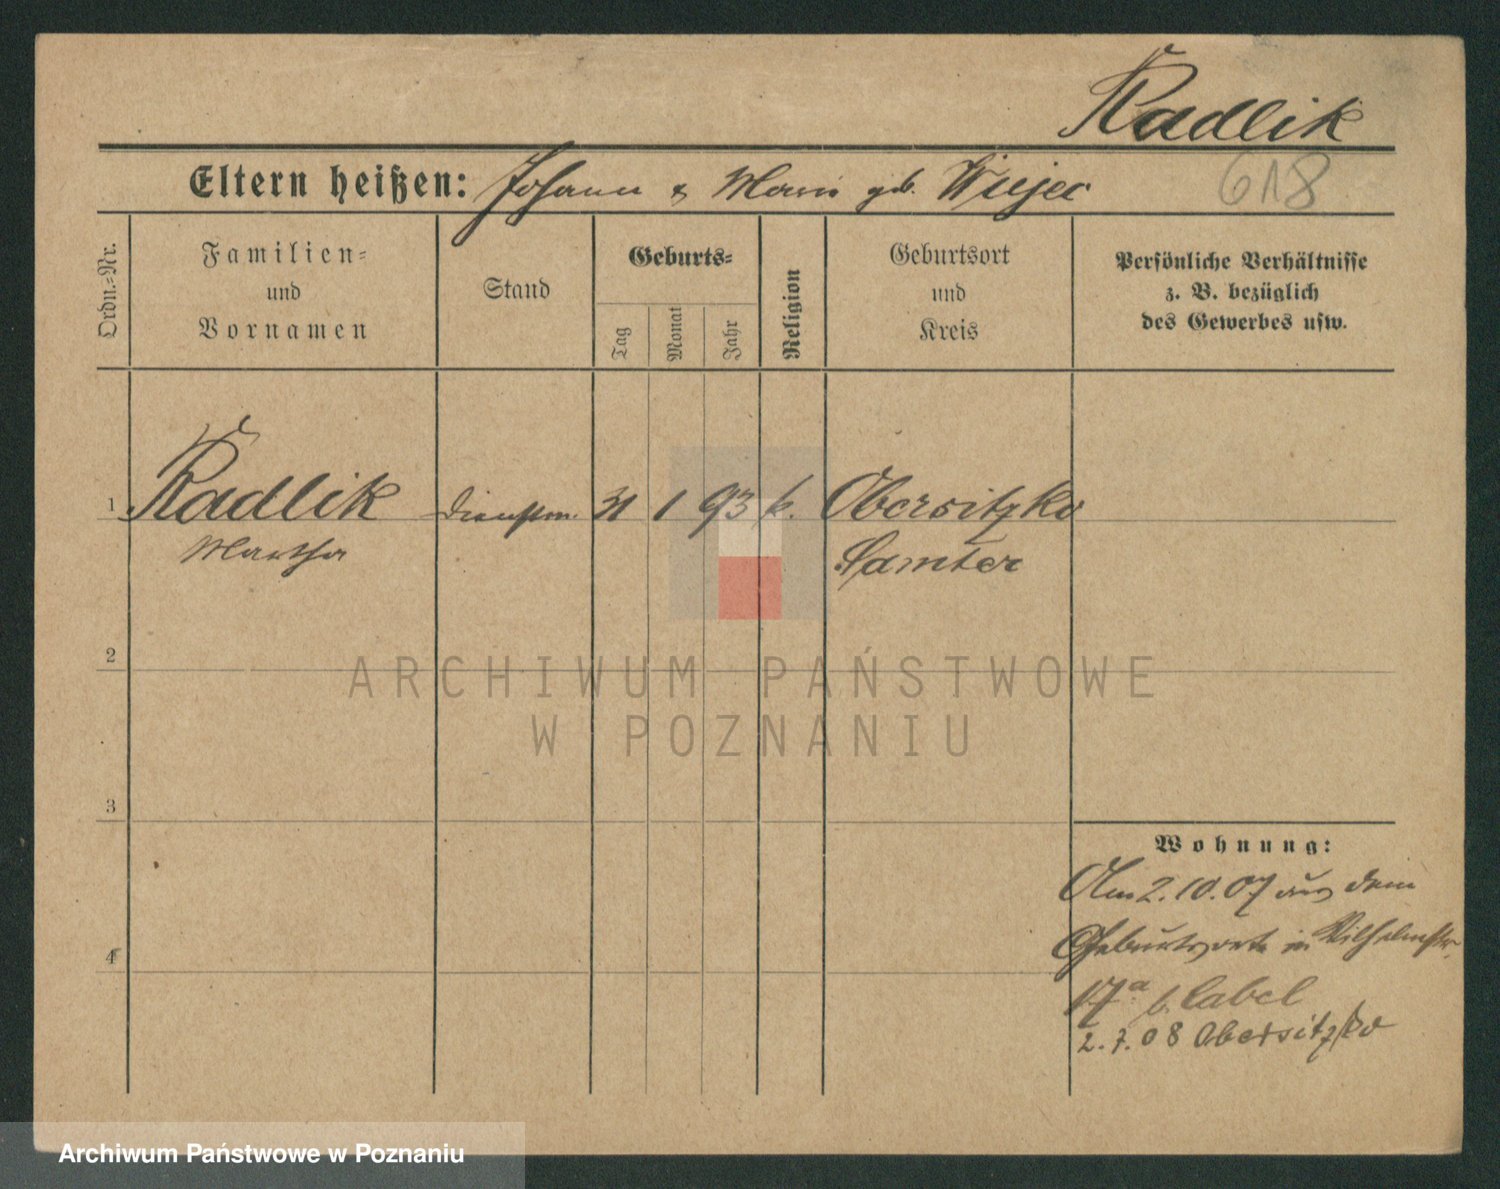 Radlik
Eltern heißen: Johann & Marie geb. Wiejec
618
Ordn.-Nr.
Familien-
und
Vornamen
Stand
Geburts-
Tag
Monat
Jahr
Religion
Geburtsort
und
Kreis
Persönliche Verhältnisse
z. B. bezüglich
des Gewerbes usw.
1 Radlik Dienstm. 31 1 93 k. Obersitzko
Martha Samter
2
3
4
Wohnung:
Am 2.10.07 aus dem
Geburtsorte in Wilhelmstr.
17a b. Label
2.7.08 Obersitzko
ARCHIWUM PAŃSTWOWE
W POZNANIU
Archiwum Państwowe w Poznaniu